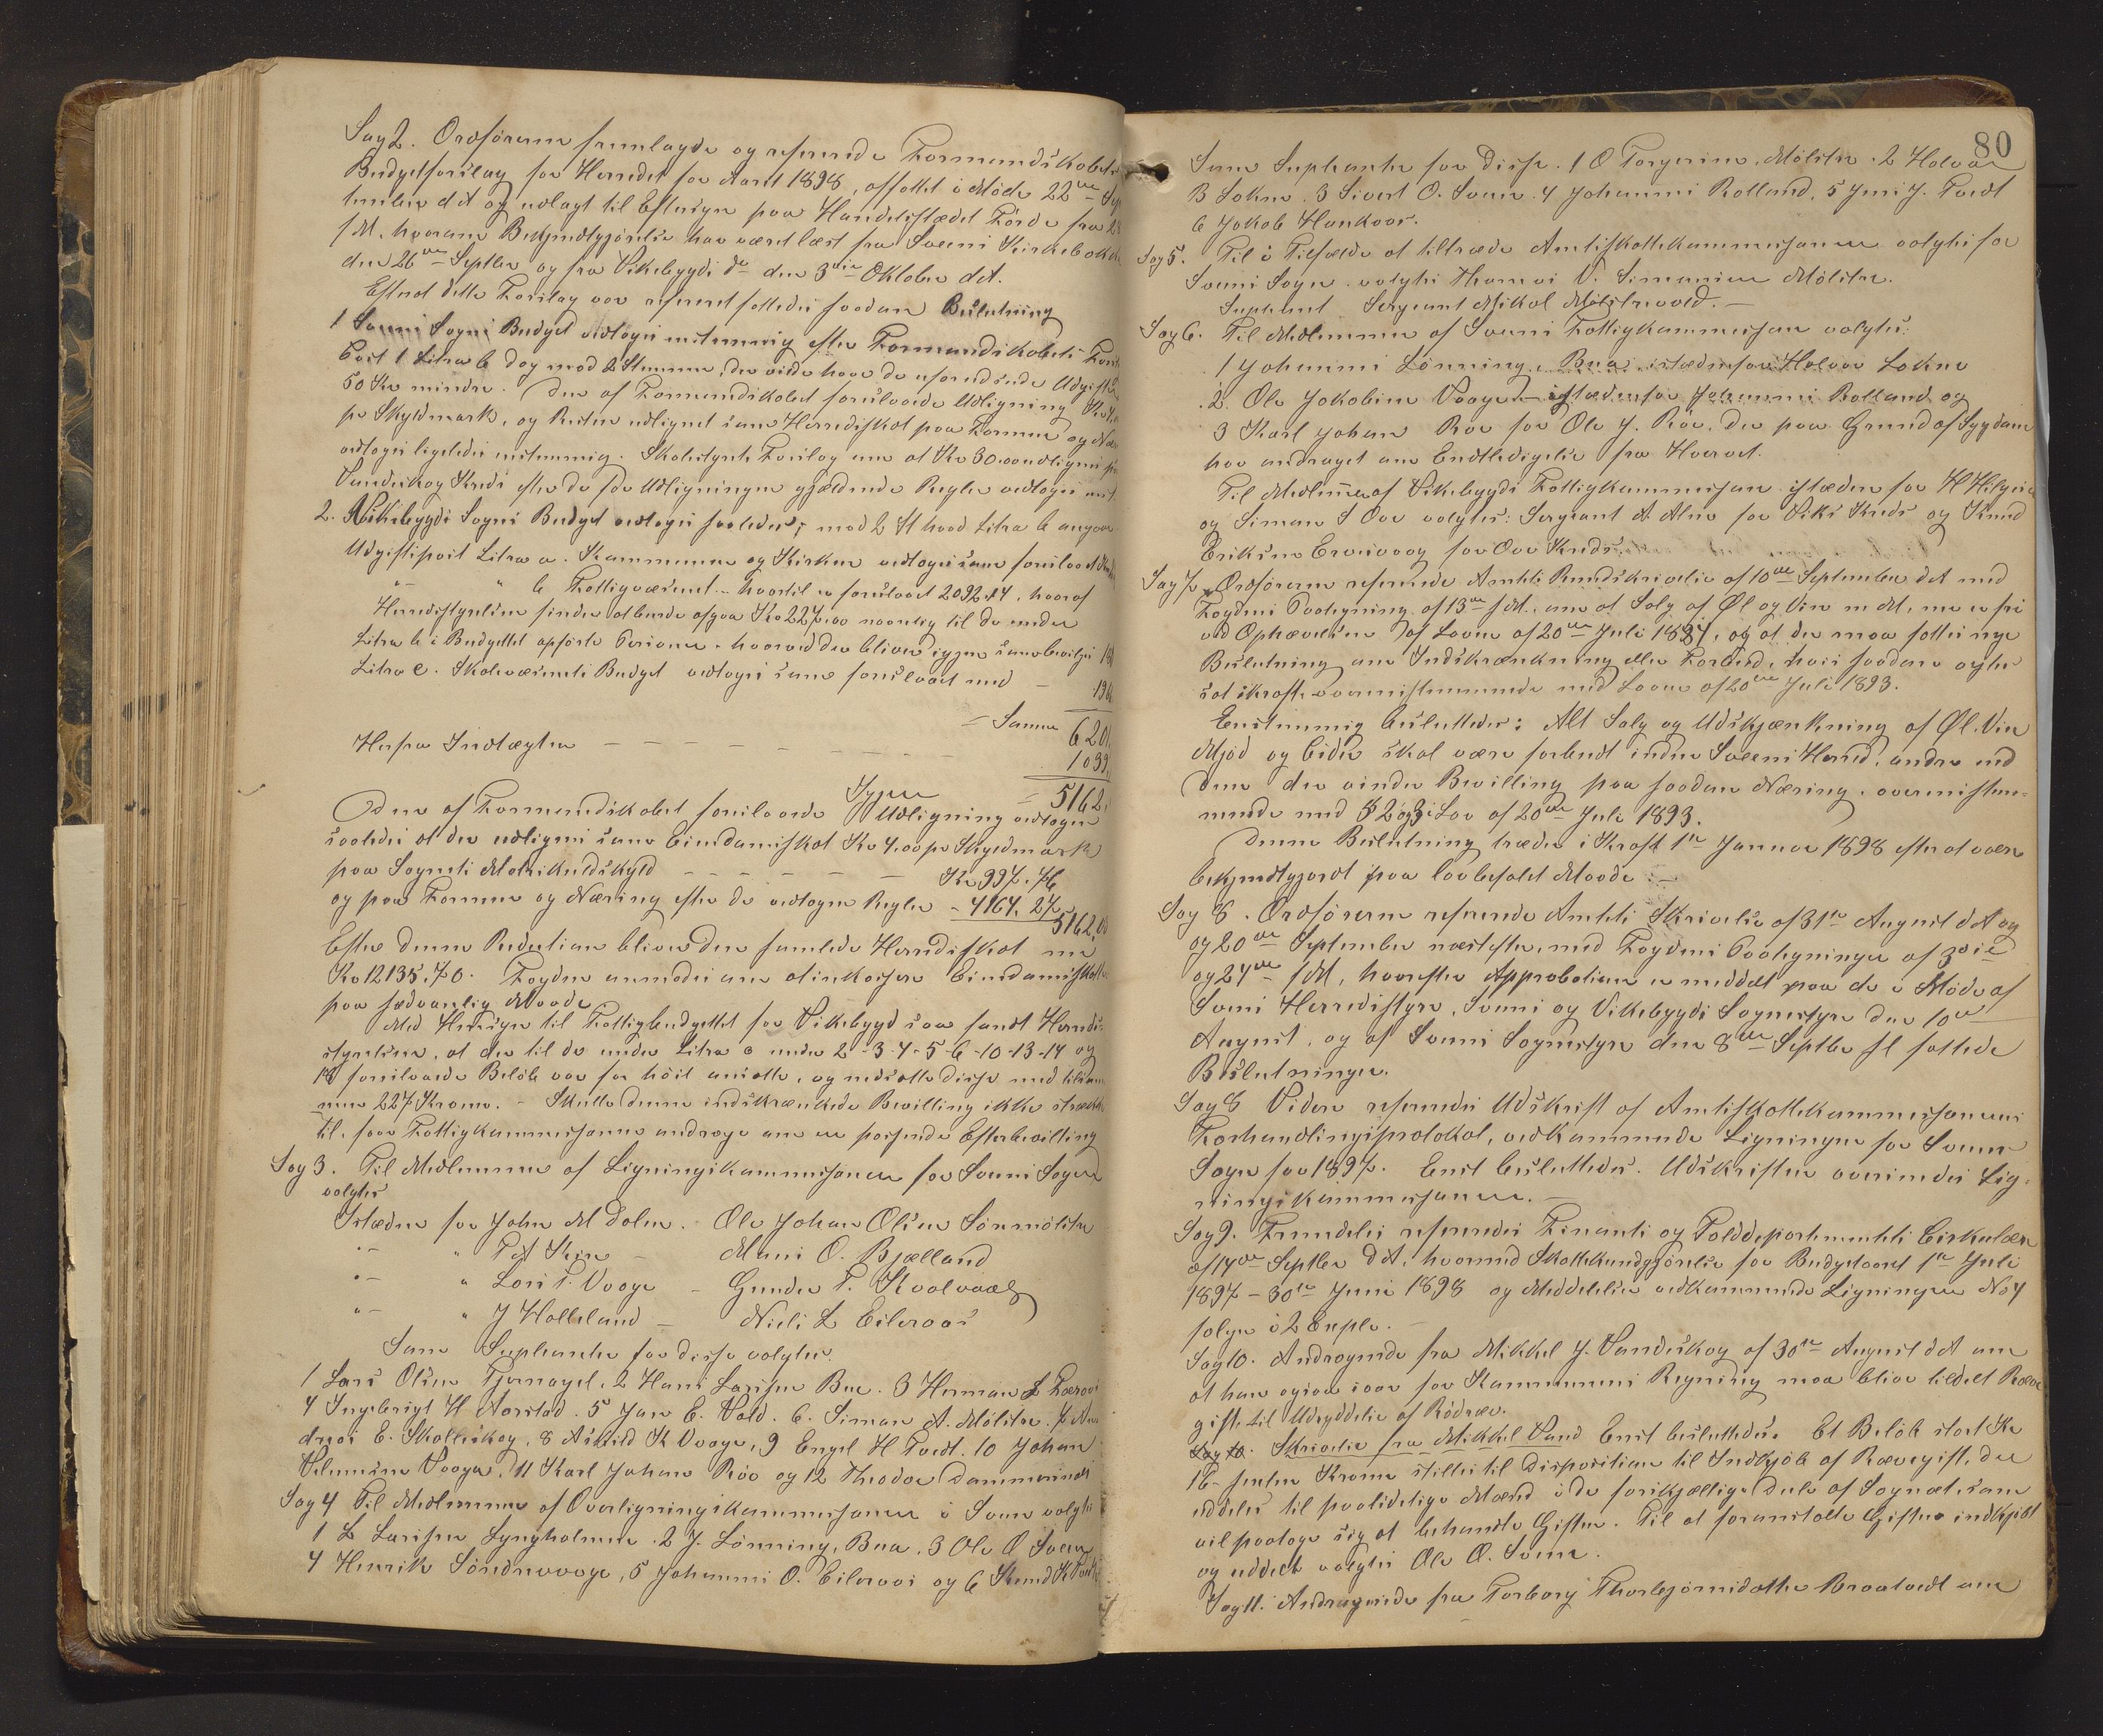 Sag 2. Ordføreren fremlagde og refererede Formandskabets
Budgetforslag for Herredet for Aaret 1898, affattet i Møde 22de Sep
tember d A og udlagt til Eftersyn paa Handelsstedet Førde fra 23
s M. hvorom Bekjendtgjørelse har været læst fra Sveens Kirkebakke
den 26de Septbr og fra Vikebygds do den 3die Oktober d A.
Efterat dette Forslag var referert fattedes saadan Beslutning
1 Sveens Sogns Budget vedtoges enstemmig efter Formandskabets Forsl
Post 1 Litra b dog mod 2 Stemmer, der vilde have de Udgifter
50 Kr mindre. Den af Formandskabet foreslaaede Udligning Kr 4,
pr Skyldmark, og Resten udlignet som Herredsskat paa Formue og Næri
vedtoges ligeledes enstemmig. Skolestyrets Forslag om at Kr 30.00 udlignes paa
Vandaskog Kreds efter de for Udligningen gjældende Regler vedtoges enst.
2. Vikebygds Sogns Budget vedtoges saaledes, mod 2 St hvad Litra b angaar
Udgiftspost Litra a. Kommunen og Kirken vedtoges som foreslaaet
" " b Fattigvæsenet – hvortil er foreslaaet 2092.14, hvoraf
Herredsstyrelsen finder at burde afgaa Kr 227,00 navnlig til de under
Litra b i Budgettet opførte Personer. hvorved der bliver igjen som bevilges 18
Litra c. Skolevæsenets Budget vedtoges som foreslaaet med – 196
– Summa 6201.
Herfra Indtægten – – – – – – – – 1039.
Igjen – 5162.
Den af Formandskabet foreslaaede Udligning vedtoges
saaledes at der udlignes som Eiendomsskat Kr 4.00 pr Skyldmark
paa Sognets Matrikulskyld – – – – – – Kr 997.76
og paa Formue og Næring efter de vedtagne Regler - 4164.27
5162,0
Efter denne Reduction bliver den samlede Herredsskat nu
Kr 12135.70. Fogden anmodes om at inkassere Eiendomsskatten
paa sædvanlig Maade.
Med Hensyn til Fattigbudgettet for Vikebygd saa fandt Herreds-
styrelsen, at der til de under Litra c under 2-3-4-5-6-10-13-14 og
18 foreslaaede Beløb var for høit ansatte, og nedsatte disse med tilsam
men 227 Kroner. – Skulde denne indskrænkede Bevilling ikke strække
til, faar Fattigkommissionen andrage om en passende Efterbevilling
Sag 3. Til Medlemmer af Ligningskommissionen for Sveens Sogn
valgtes
Istedenfor John M Dalen. Ole Johan Olsen Sønmølster
" – " T A Stein – Mons O. Bjælland
" – " Lars T. Vaage – Gunder T. Kvalvaag
" – " J Halleland – Nils L Eileraas
Som Supleanter for disse valgtes
1 Lars Olsen Tjernagel, 2 Hans Larssen Bue. 3 Herman L Færaas
4 Ingebrigt H Aarstad. 5 Jan E. Vold. 6. Simon A. Mølster. 7 An
dreas E. Skolleskog, 8 Askild K Vaage, 9 Engel H Tvedt. 10 Johan
Velemsen Vaage, 11 Karl Johan Røv og 12 Theodor Dommersnæs
Sag 4 Til Medlemmer af Overligningskommissionen i Sveen valgtes
1 L Larssen Lyngholmen. 2 J. Lønning, Bua. 3 Ole O Sveen
4 Henrik Søndrevaage, 5 Johannes O. Eileraas og 6 Knud K Tvedt
80
Som Supleanter for disse. 1 O Torgersen, Mølster. 2 Halvor
B Lokna. 3 Sivert O. Sveen. 4 Johannes Rolland. 5 Jens J. Tvedt
6 Jakob Haukaas.
Sag 5. Til i Tilfælde at tiltræde Amtsskattekommissionen valgtes for
Sveens Sogn valgtes Thomas V. Simonsen Mølster.
Supleant Sergeant Mikal Mølstrevold. –
Sag 6. Til Medlemmer af Sveens Fattigkommission valgtes:
1 Johannes Lønning, Bua istedenfor Halvor Lokna
2. Ole Jakobsen Vaage – istedenfor Johannes Rolland og
3 Karl Johan Røv for Ole J. Røv, der paa Grund af Sygdom
har andraget om Entledigelse fra Hvervet.
Til Medlemmer af Vikebygds Fattigkommission istedenfor H Helgesen
og Simon S Ove valgtes: Sergeant A. Alne for Viks Kreds og Knud
Eriksen Ervesvaag for Ove Kreds.
Sag 7. Ordføreren refererede Amtets Rundskrivelse af 10de September d A med
Fogdens Paategning af 13de s M. om at Salg af Øl og Vin m M, nu er fri
ved Ophævelsen af Loven af 20de Juli 1884, og at der maa fattes nye
Beslutning om Indskrænkning eller Forbud, hvis saadan agtes
sat ikraft, overensstemmende med Loven af 20de Juli 1893.
Enstemmig besluttedes: Alt Salg og Udskjænkning af Øl. Vin
Mjød og Cider skal være forbudt inden Sveens Herred, andre end
dem der vinder Bevilling paa saadan Næring, overensstem-
mende med § 2 og 3 i Lov af 20de Juli 1893.
Denne Beslutning træder i Kraft 1ste Januar 1898 efter at være
bekjendtgjordt paa lovbefalet Maade. –
Sag 8. Ordføreren refererede Amtets Skrivelse af 31te August d A og
og 20de September næstefter, med Fogdens Paategninger af 3die
og 24de s M, hvorefter Approbation er meddelt paa de i Møde af
Sveens Herredsstyre, Sveens og Vikebygds Sognestyre den 10de
August, og af Sveens Sognestyre den 8de Septbr sl fattede
Beslutninger.
Sag 8 Videre refereredes Udskrift af Amtsskattekommissionens
Forhandlingsprotokol, vedkommende Ligningen for Sveen
Sogn for 1897. Enst besluttedes. Udskriften oversendes Lig-
ningskommissionen. –
Sag 9. Fremdeles refereredes Finants og Tolddepartementets Cirkulære
af 14de Septbr d A, hvormed Skattekundgjørelse for Budgetaaret 1ste Juli
1897 – 30te Juni 1898 og Meddelelse vedkommende Ligningen No 4
følger i 2 Expl. –
Sag 10. Andragende fra Mikkel J. Vandaskog af 30te August d A om
at han ogsaa iaar for Kommunens Regning maa blive tildelt Ræve
gift til Udryddelse af Rødræv.
Sag 10. Skrivelse fra Mikkel Vand Enst besluttedes. Et Beløb stort Kr
16 – sexten Kroner stilles til Disposition til Indkjøb af Rævegift, der
uddeles til paalidelige Mænd i de forskjællige Dele af Sognet, som
vil paatage sig at behandle Giften. Til at foranstalte Giften indkjøbt
og uddelt valgtes Ole O. Sveen.
Sag 11. Andragende fra Torborg Thorbjørnsdatter Braatvedt om